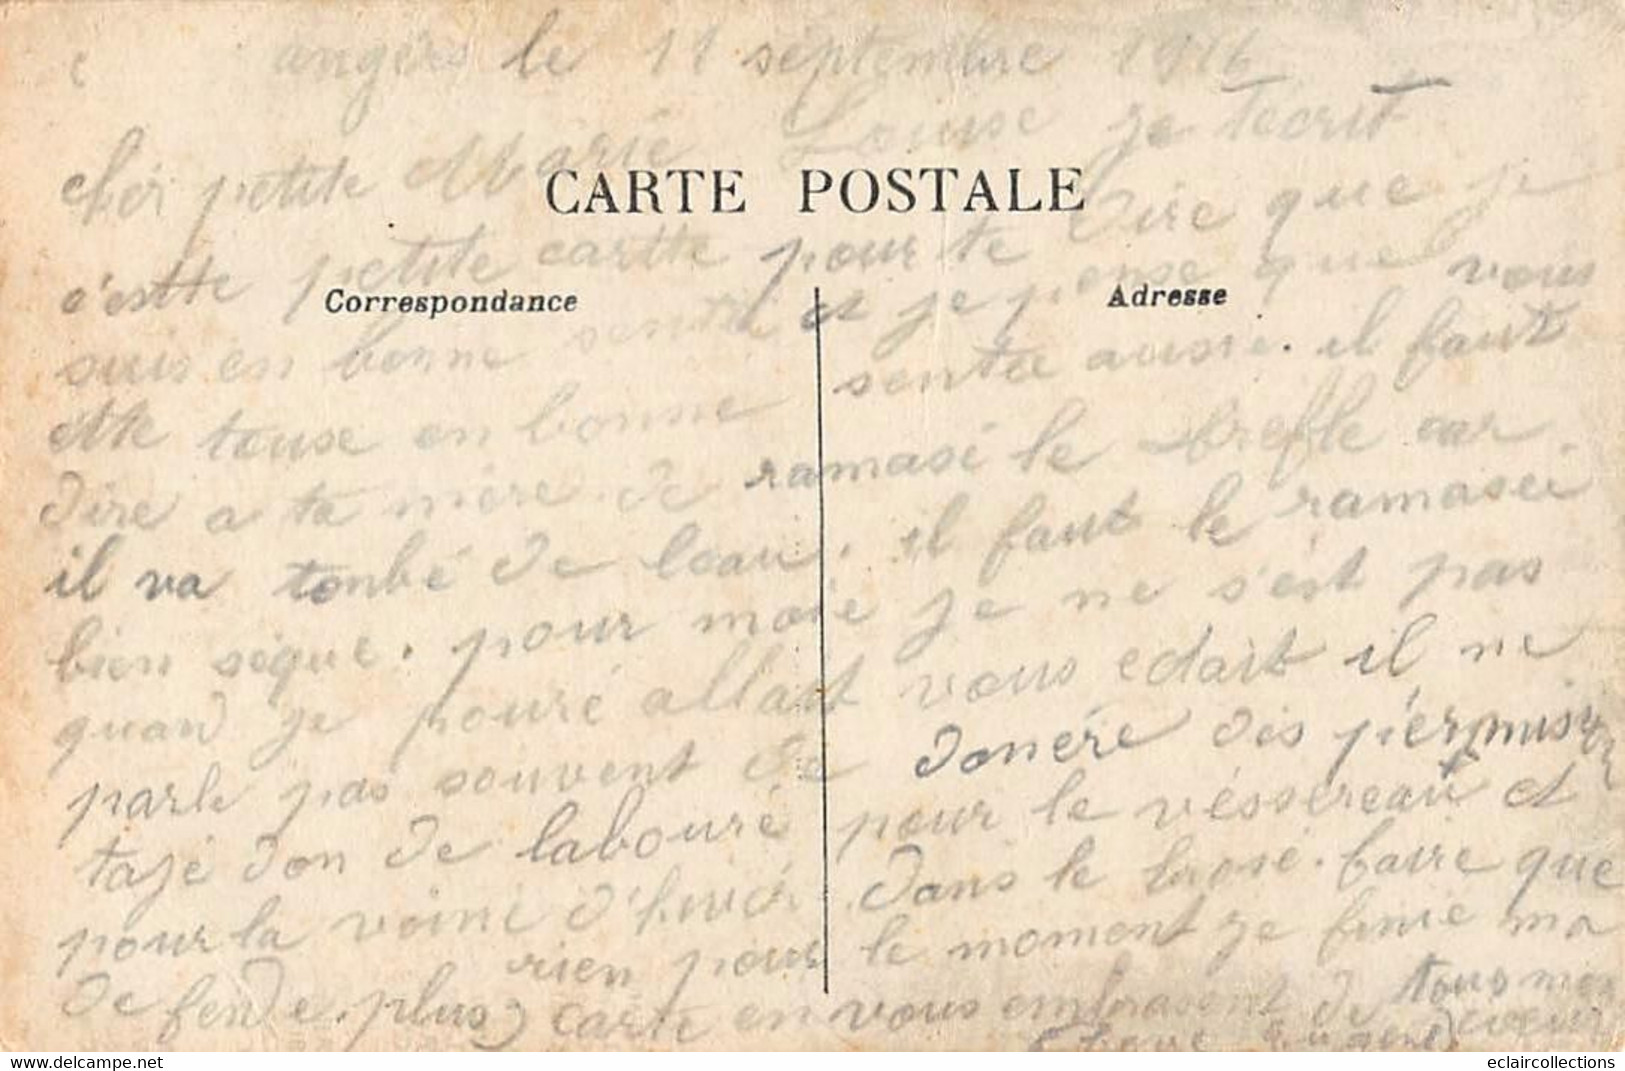 angers le 11 septembre 1916
cher petite Marie Louise je técrit
CARTE POSTALE
c'estte petite cartte pour te dire que je
Correspondance
Adresse
suis en bonne sentée et je pense que vous
ette touse en bonne sentée aussie. il faut
dire a ta mère de ramasé le trefle car
il va tonbé de leau. il faut le ramaséi
bien sèque. pour moie je ne s'est pas
quand je pouré allait vous edait il ne
parle pas souvent de donéré dés pérmision
tajé don de labouré pour le vésséreau et
pour la voine d'hivér dans le brosé. faire que
de fendre. plus rien pour le moment je finie ma
carte en vous embrasent de tous mon
cœur
Eugene
eclaircollections